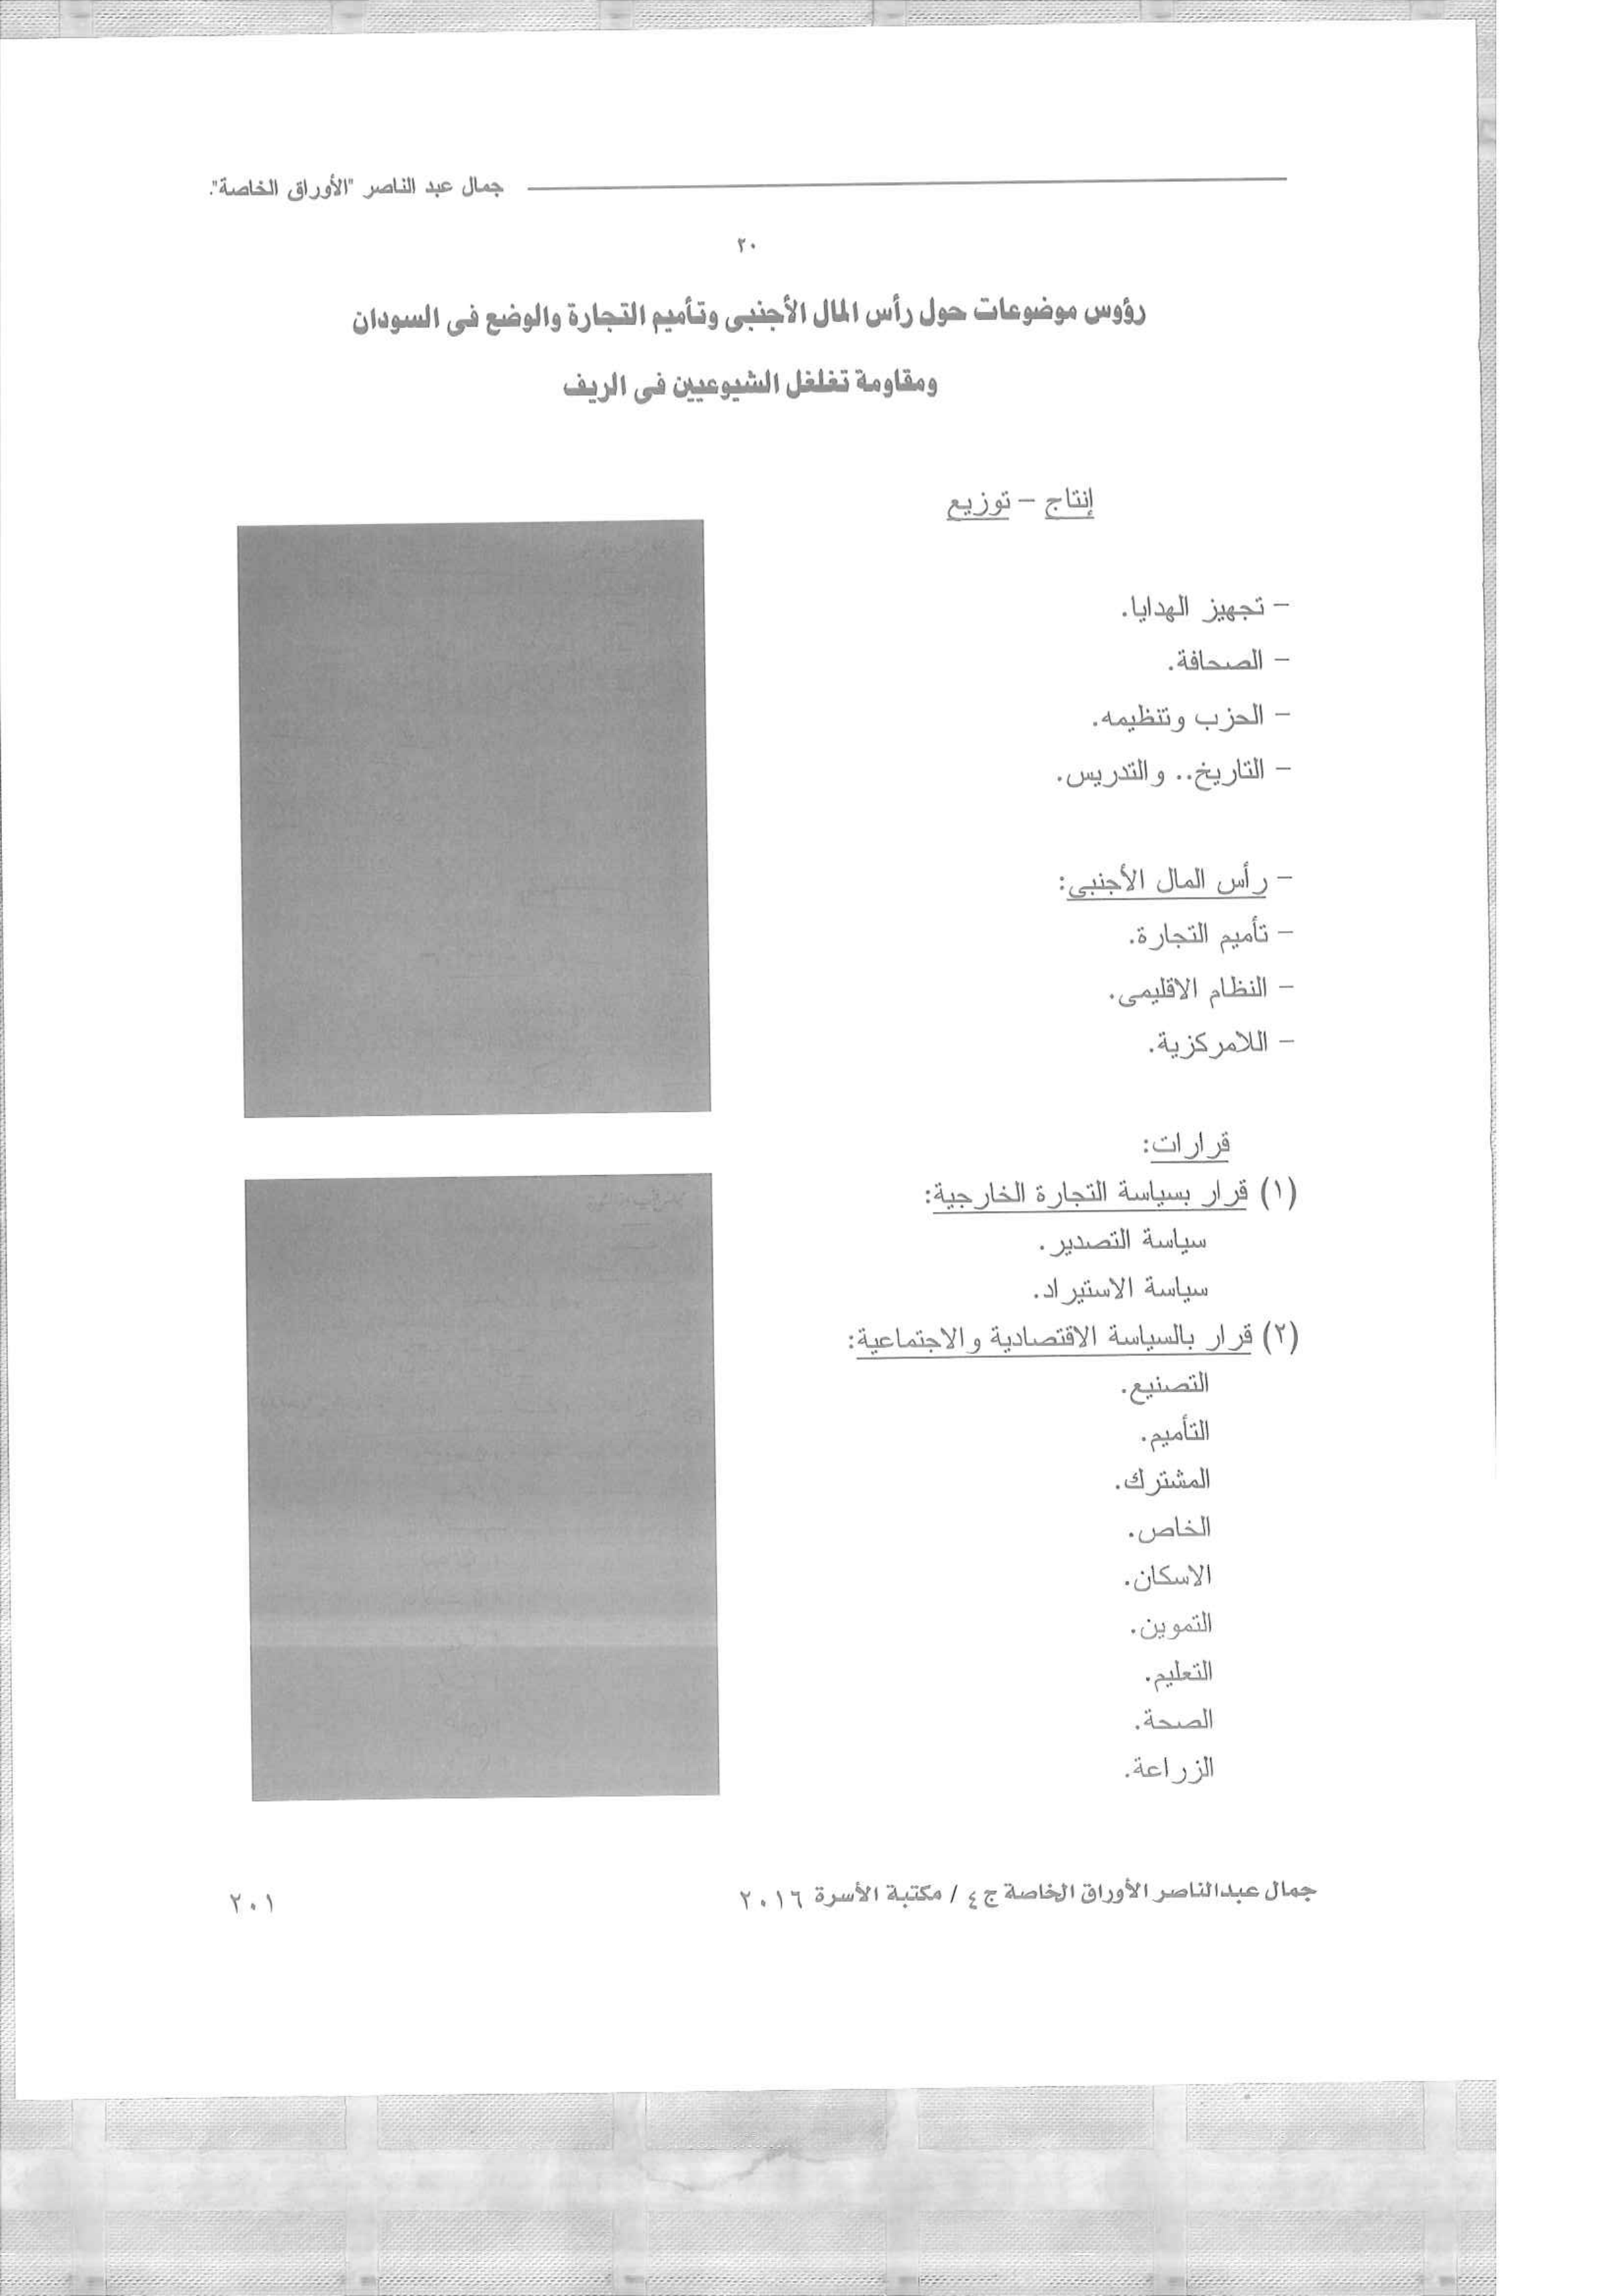 جمال عبد الناصر "الأوراق الخاصة".
٢٠
رؤوس موضوعات حول رأس المال الأجنبى وتأميم التجارة والوضع فى السودان
ومقاومة تغلغل الشيوعيين فى الريف
إنتاج – توزيع
– تجهيز الهدايا.
– الصحافة.
– الحزب وتنظيمه.
– التاريخ.. والتدريس.
– رأس المال الأجنبى:
– تأميم التجارة.
– النظام الاقليمى.
– اللامركزية.
قرارات:
(١) قرار بسياسة التجارة الخارجية:
سياسة التصدير.
سياسة الاستيراد.
(٢) قرار بالسياسة الاقتصادية والاجتماعية:
التصنيع.
التأميم.
المشترك.
الخاص.
الاسكان.
التموين.
التعليم.
الصحة.
الزراعة.
جمال عبدالناصر الأوراق الخاصة ج٤ / مكتبة الأسرة ٢٠١٦
٢٠١